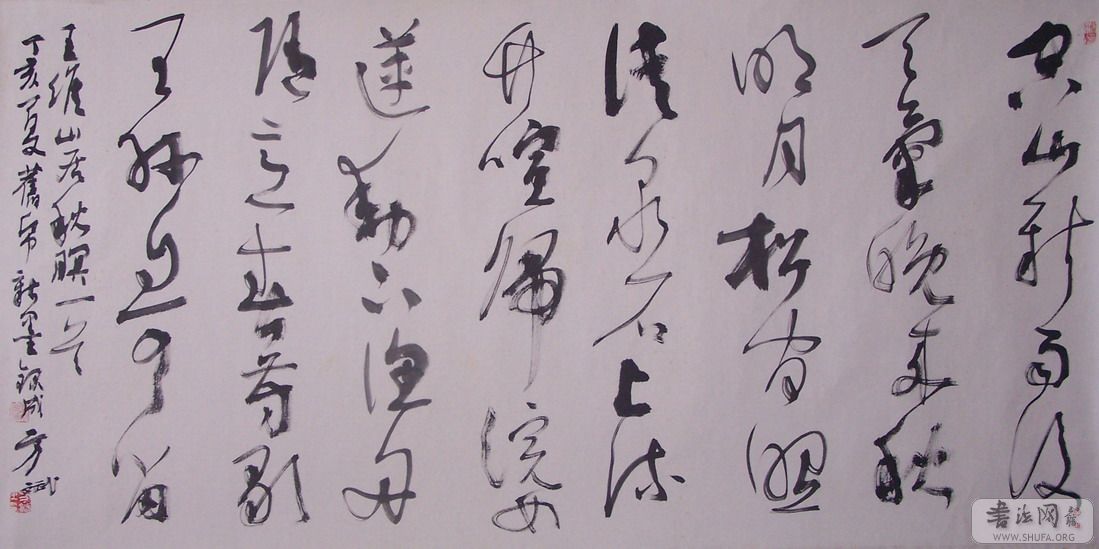 空山新雨後
天氣晚來秋
明月松間照
清泉石上流
竹喧歸浣女
蓮動下漁舟
隨意春芳歇
王孫自可留
王維山居秋暝一首
丁亥夏舊帋新墨 成 方斌
書法网
WWW.SHUFA.ORG